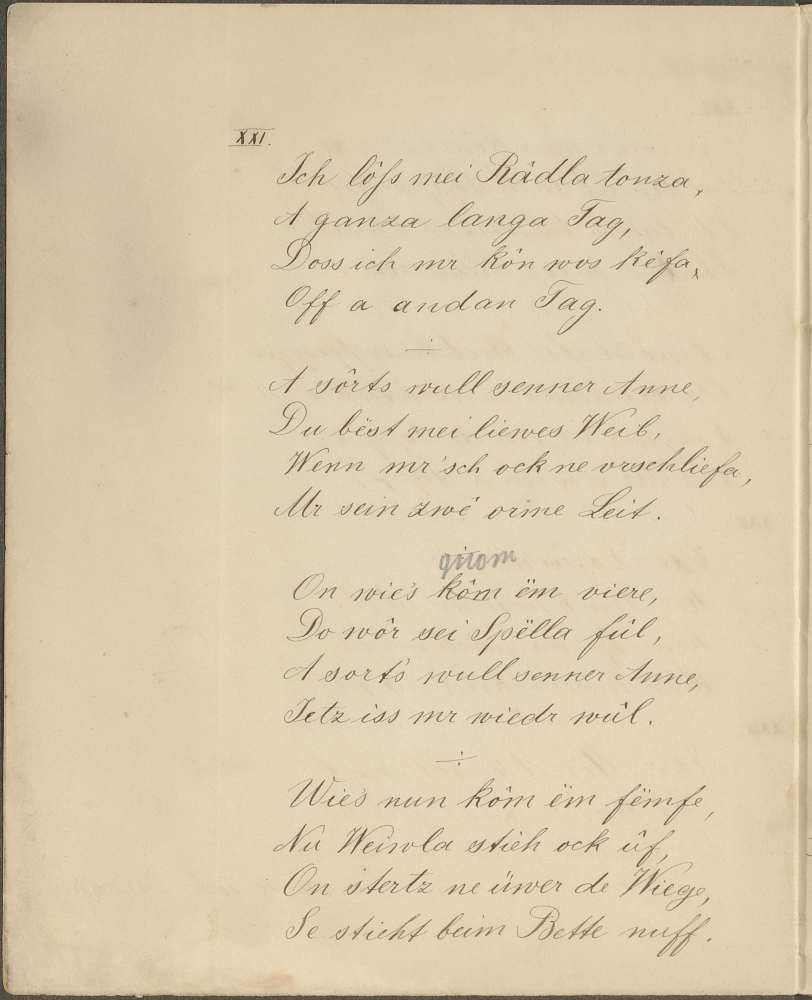 XXI.
Ich lôss mei Râdla tonza,
A ganza langa Tag,
Doss ich mr kôn wos kêfa,
Off a andan Tag.
A sôrts wull senner Anne,
Du bëst mei liewes Weib,
Wenn mr'sch ock ne vrschliefa,
Mr sein zwê orme Leit.
On wie's kôm ëm viere,
Do wôr sei Spëlla fûl,
A sort's wull senner Anne,
Jetz iss mr wiedr wûl.
Wie's nun kôm ëm fëmfe,
Nu Weiwla stieh ock ûf,
On stertz ne üwer de Wiege,
Se stieht beim Bette nuff.